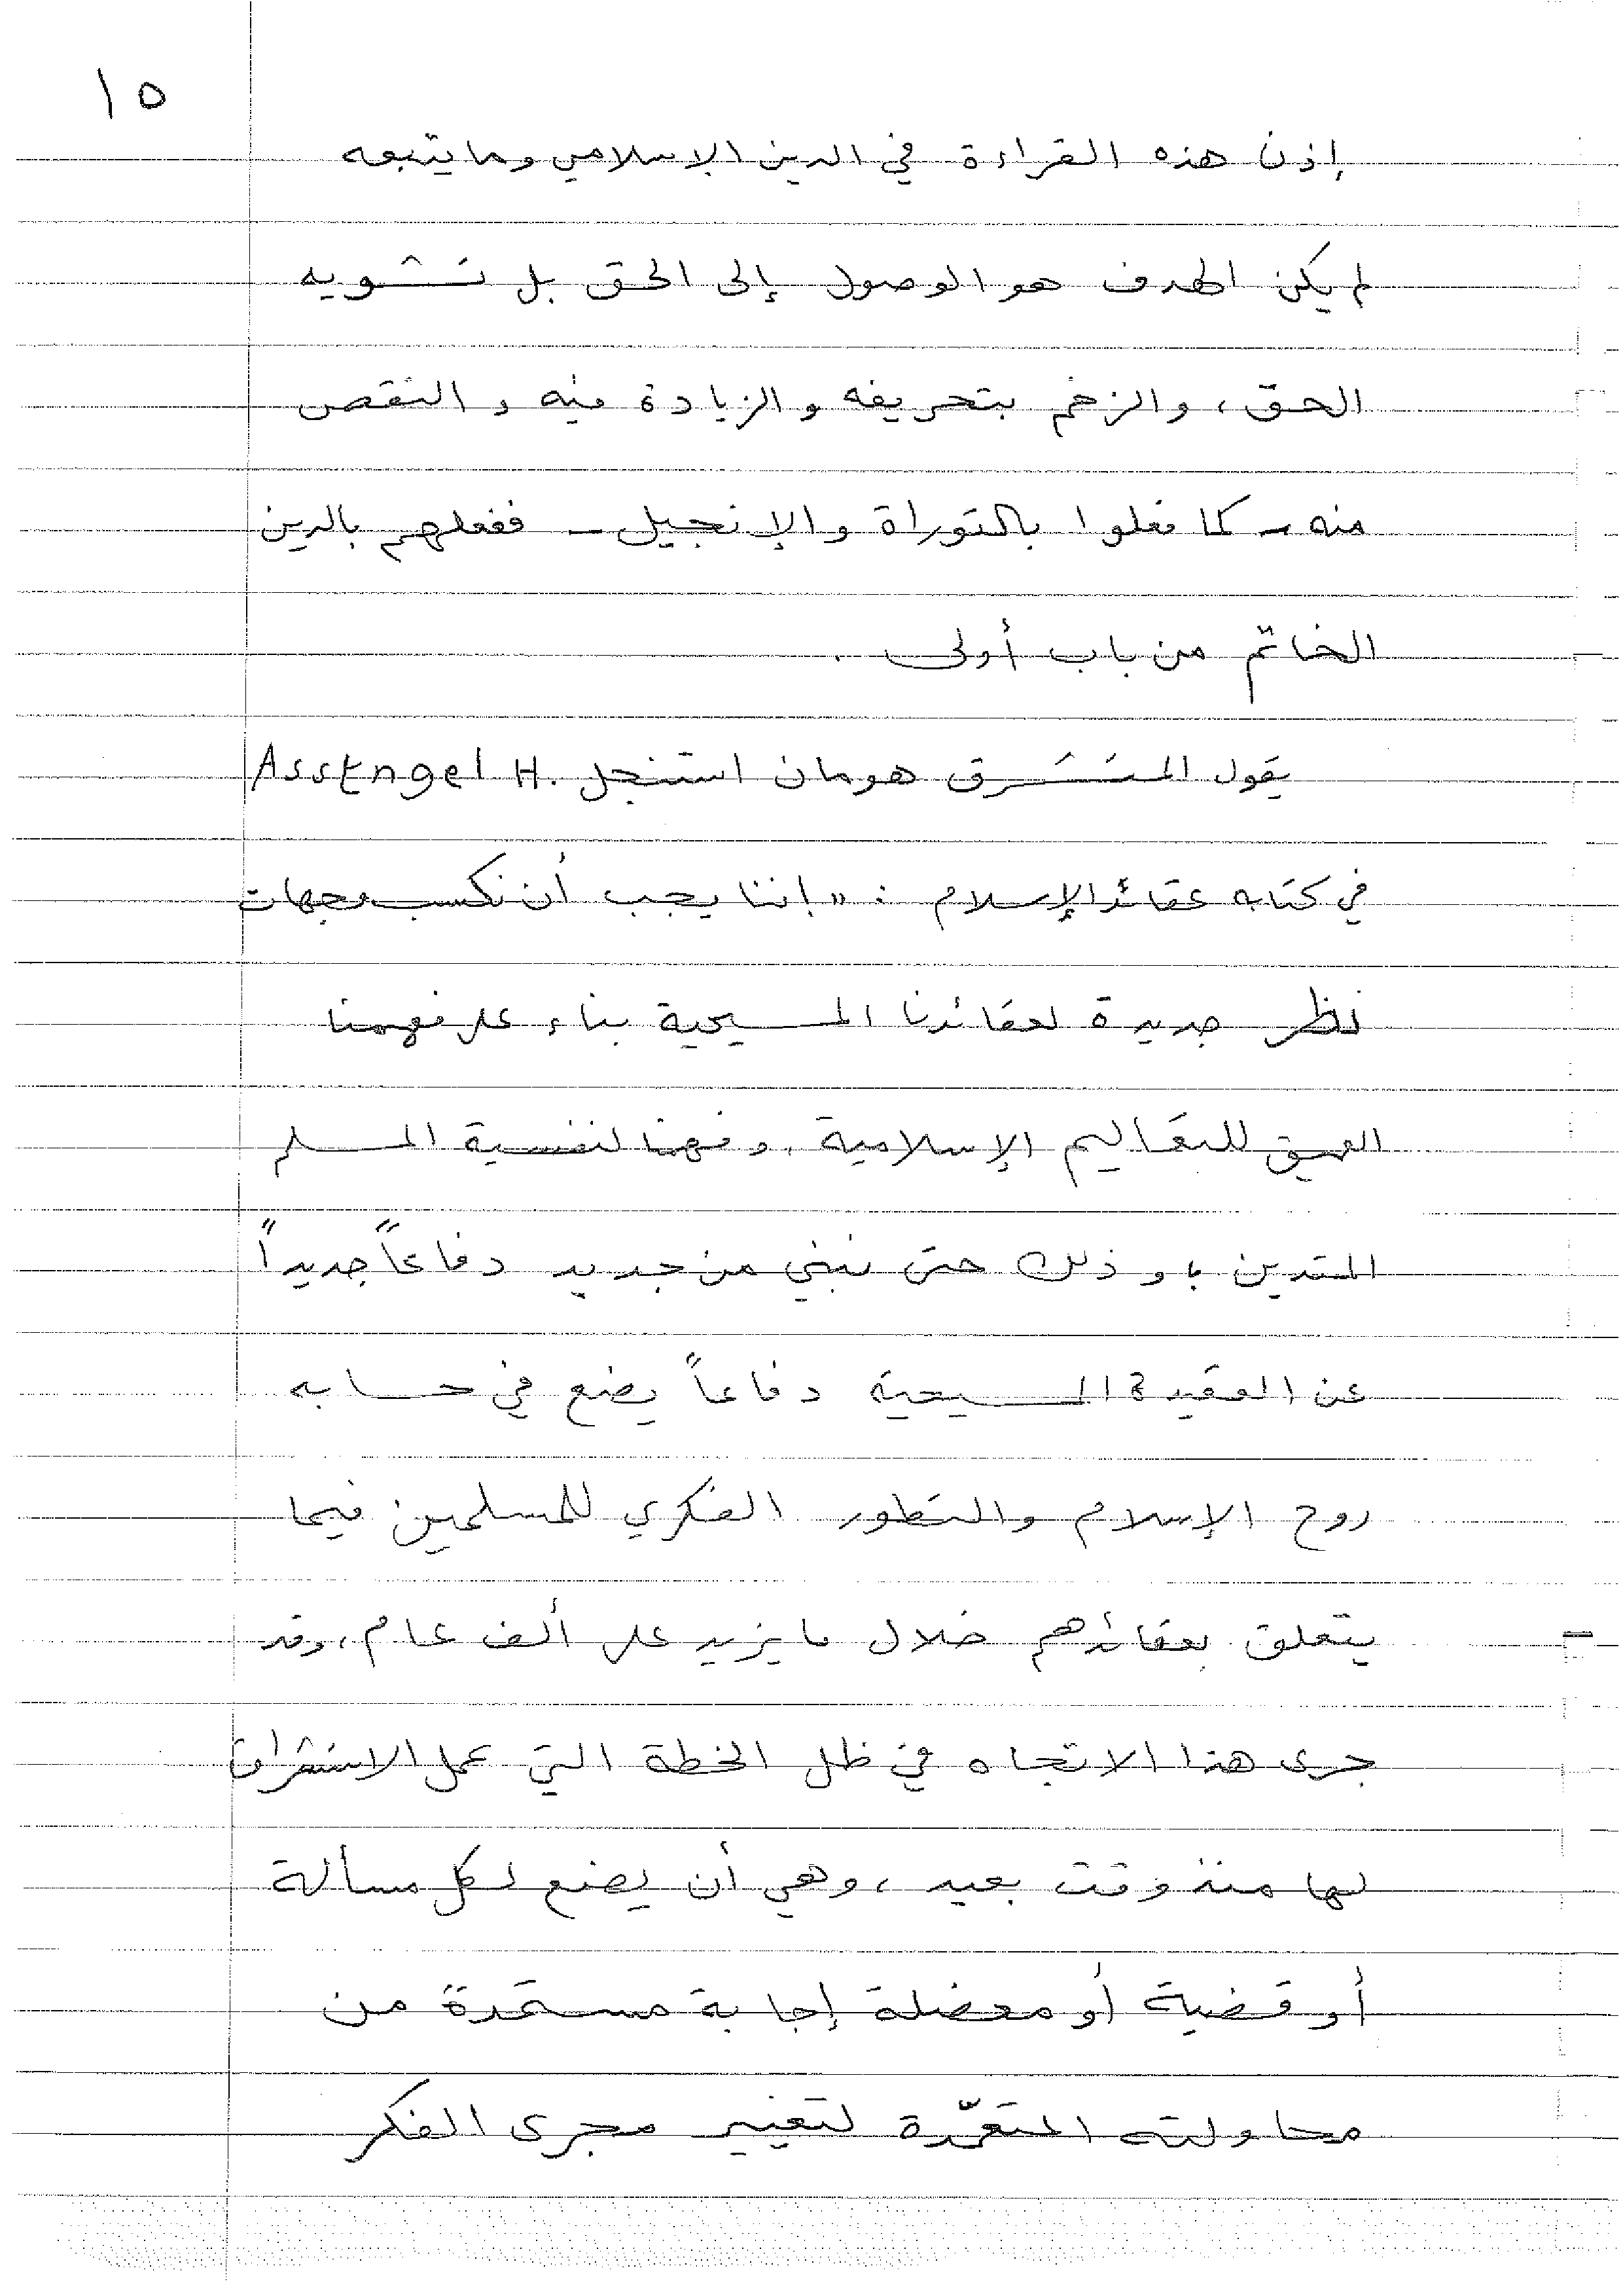 ١٥
إذن هذه القراءة في الدين الإسلامي وما يتبعه
لم يكن الهدف هو الوصول إلى الحق بل تشويه
الحق، والزخم بتحريفه والزيادة فيه والنقص
منه – كما فعلوا بالتوراة والإنجيل – ففعلهم بالدين
الخاتم من باب أولى .
يقول المستشرق هومان استنجل Asstngel H.
في كتابه عقائد الإسلام : " إننا يجب أن نكسب وجهات
نظر جديدة لعقائدنا المسيحية بناء على فهمنا
العميق للتعاليم الإسلامية، وفهمنا لنفسية المسلم
المتدين، وذلك حتى نبني من جديد دفاعاً جديداً
عن العقيدة المسيحية دفاعاً يضع في حسابه
روح الإسلام والتطور الفكري للمسلمين فيما
يتعلق بعقائدهم خلال ما يزيد على ألف عام، وقد
جرى هذا الاتجاه في ظل الخطة التي عمل الاستشراق
لها منذ وقت بعيد، وهي أن يضع لكل مسألة
أو قضية أو معضلة إجابة مستمدة من
محاولته المتعمّدة لتغيير مجرى الفكر